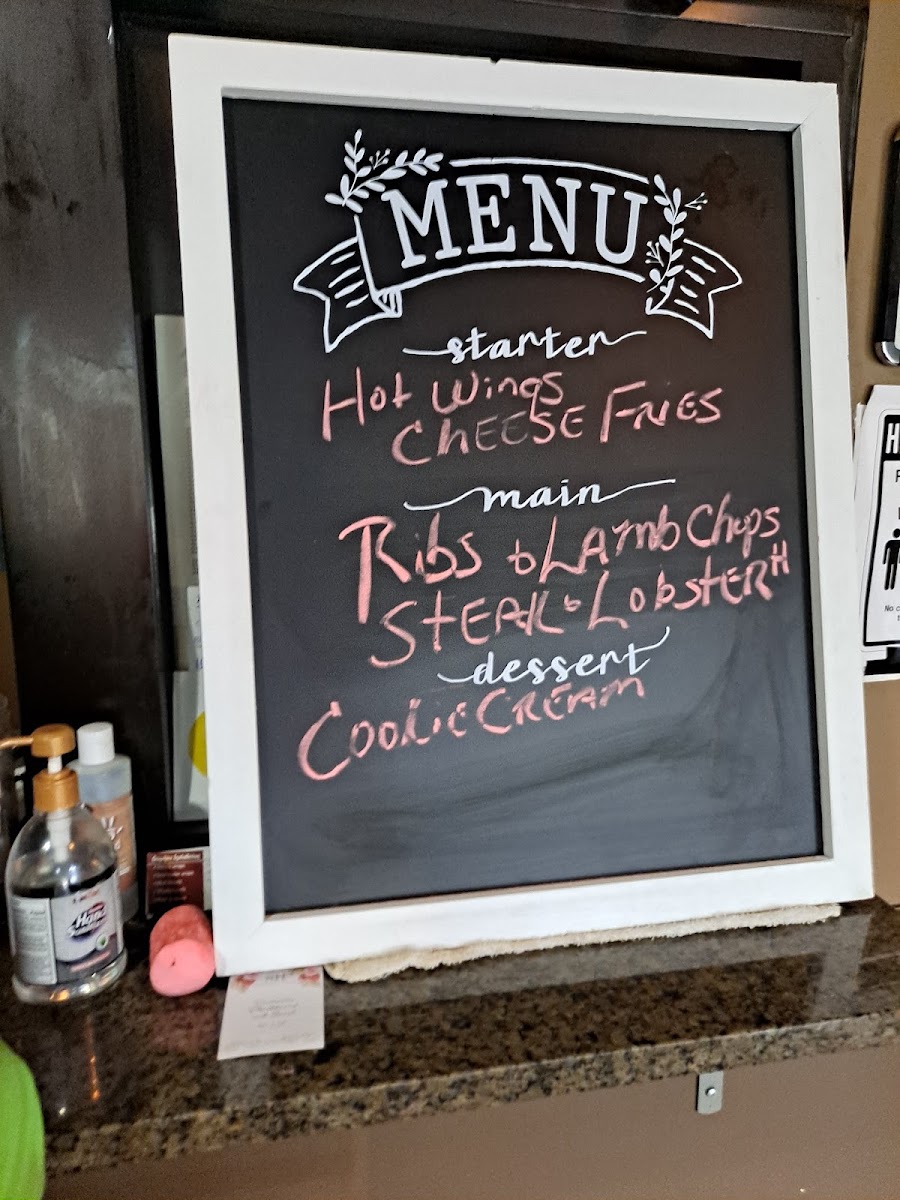 MENU
starter
Hot Wings
CHEESE FRIES
main
Ribs & LAmb Chops
STEAK & LobsTER H
dessert
COOKIE CREAM
Hand